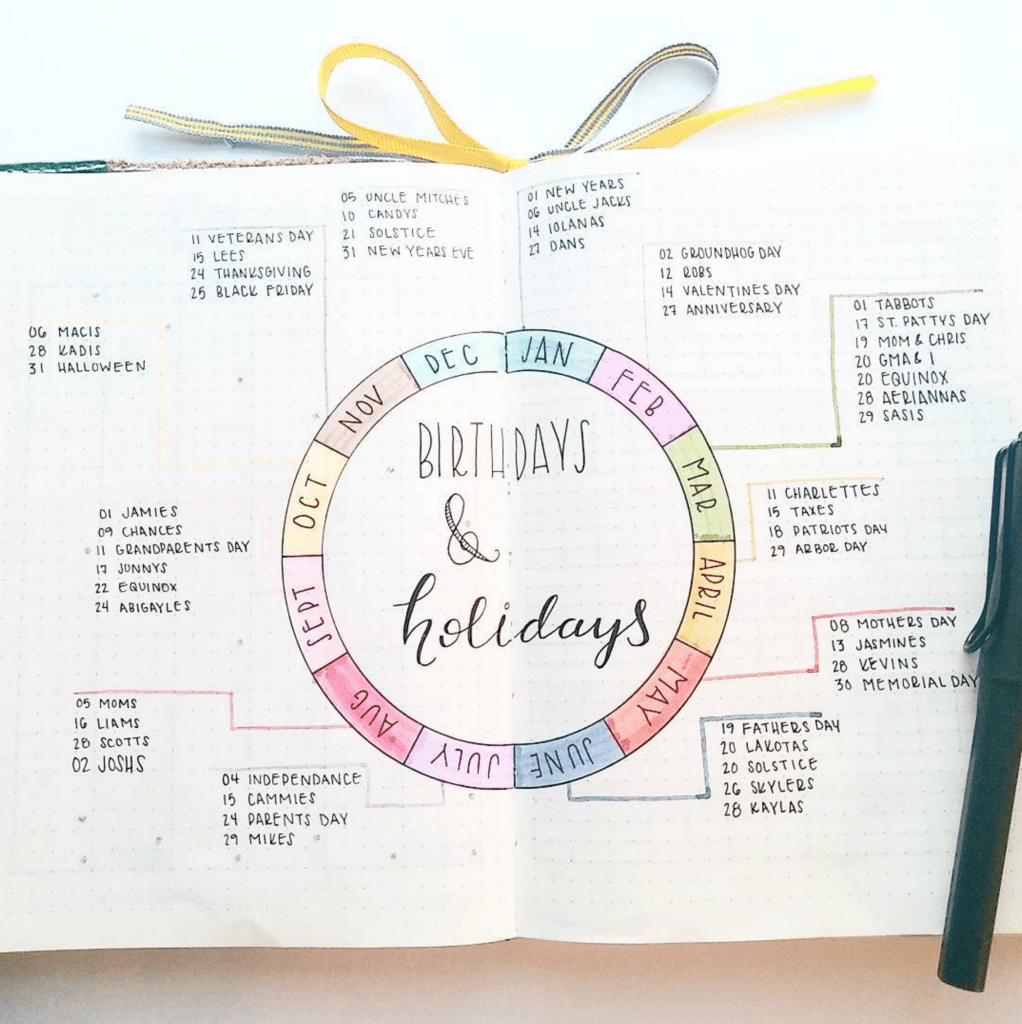 BIRTHDAYS
&
holidays
JAN
01 NEW YEARS
06 UNCLE JACKS
14 IOLANAS
27 DANS
FEB
02 GROUNDHOG DAY
12 ROBS
14 VALENTINES DAY
27 ANNIVERSARY
MAR
01 TABBOTS
17 ST. PATTYS DAY
19 MOM & CHRIS
20 GMA & I
20 EQUINOX
28 AERIANNAS
29 SASIS
APRIL
11 CHARLETTES
15 TAXES
18 PATRIOTS DAY
29 ARBOR DAY
MAY
08 MOTHERS DAY
13 JASMINES
28 KEVINS
30 MEMORIAL DAY
JUNE
19 FATHERS DAY
20 LAKOTAS
20 SOLSTICE
26 SKYLERS
28 KAYLAS
JULY
04 INDEPENDANCE
15 CAMMIES
24 PARENTS DAY
29 MIKES
AUG
05 MOMS
16 LIAMS
28 SCOTTS
02 JOSHS
SEPT
01 JAMIES
09 CHANCES
11 GRANDPARENTS DAY
17 JONNYS
22 EQUINOX
24 ABIGAYLES
OCT
06 MACIS
28 KADIS
31 HALLOWEEN
NOV
11 VETERANS DAY
15 LEES
24 THANKSGIVING
25 BLACK FRIDAY
DEC
05 UNCLE MITCHES
10 CANDYS
21 SOLSTICE
31 NEW YEARS EVE